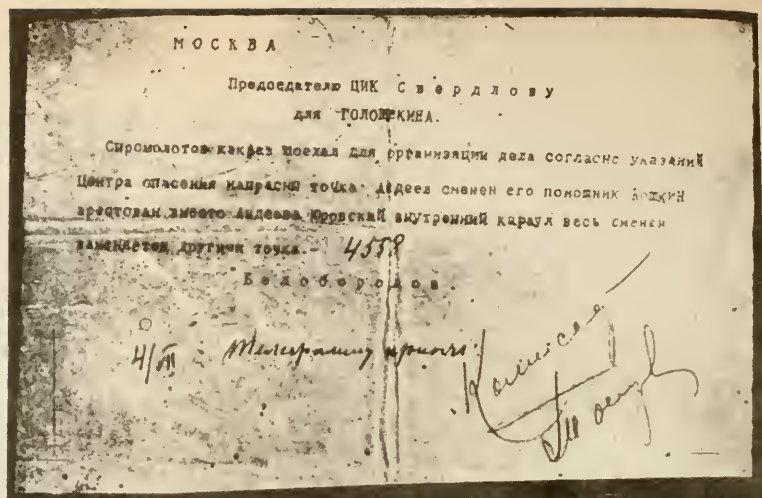 М О С К В А
Председателю ЦИК С в е р д л о в у
для ГОЛОЩЕКИНА.
Сыромолотов какраз поехал для организации дела согласно указаний
Центра опасения напрасны точка Авдеев сменен его помощник Мошкин
арестован вместо Авдеева Юровский внутренний караул весь сменен
заменяется другими точка.- 4558
Б е л о б о р о д о в .
4/VII Телеграмму принял
Комиссар